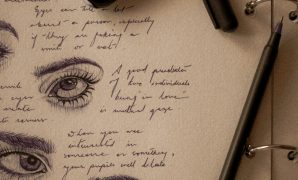 Eyes can tell a lot
about a person, especially
if they are faking a
smile or not.
A good predictor
of two individuals
"being in love"
is mutual gaze
eyes
When you are
interested in
someone or something,
your pupils will dilate